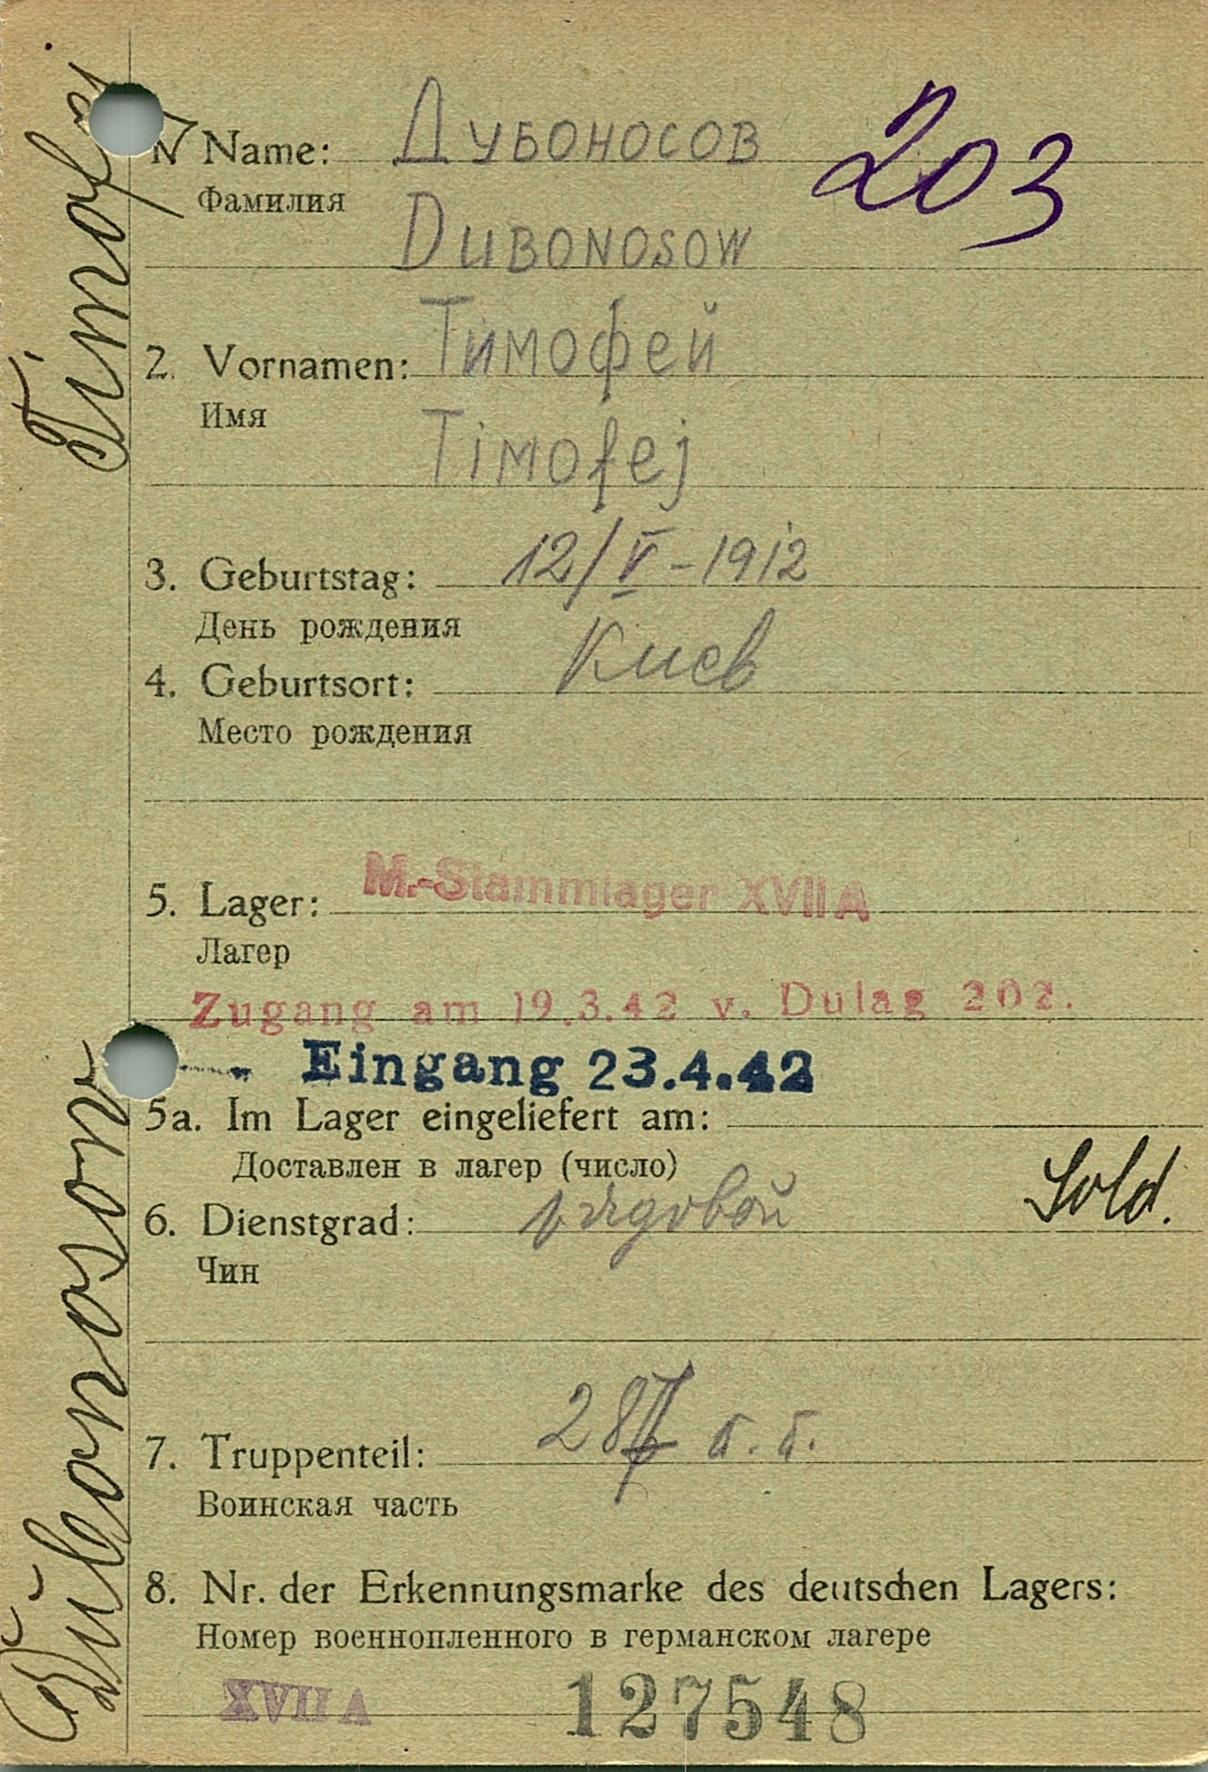 Name: Дубоносов
203
Фамилия
Dubonosow
2. Vornamen: Тимофей
Имя
Timofej
3. Geburtstag: 12/V-1912
День рождения
4. Geburtsort: Киев
Место рождения
5. Lager: M.-Stammlager XVII A
Лагер
Zugang am 19.3.42 v. Dulag 202.
Eingang 23.4.42
5a. Im Lager eingeliefert am:
Доставлен в лагер (число)
6. Dienstgrad: рядовой Sold.
Чин
7. Truppenteil: 287
Воинская часть
8. Nr. der Erkennungsmarke des deutschen Lagers:
Номер военнопленного в германском лагере
XVII A 127548
Dubonosow Timofej